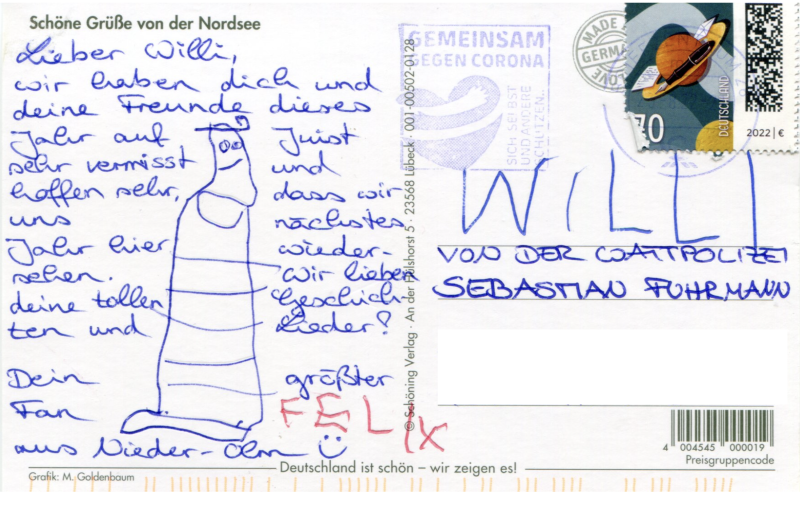 Schöne Grüße von der Nordsee
Lieber Willi,
wir haben dich und
deine Freunde dieses
Jahr auf Juist
sehr vermisst und
hoffen sehr, dass wir
uns nächstes
Jahr hier wieder-
sehen. Wir lieben
deine tollen Geschich-
ten und Lieder?
Dein größter
Fan FELIX
aus Nieder-Olm
Deutschland ist schön – wir zeigen es!
Grafik: M. Goldenbaum
© Schöning Verlag · An der Hülshorst 5 · 23568 Lübeck · 001-00502-0128
GEMEINSAM
GEGEN CORONA
SICH SELBST
UND ANDERE
SCHÜTZEN...
MADE
GERMANY
LOVE
70
DEUTSCHLAND
2022 | €
WILLI
VON DER WATTPOLIZEI
SEBASTIAN FUHRMANN
4 004545 000019
Preisgruppencode